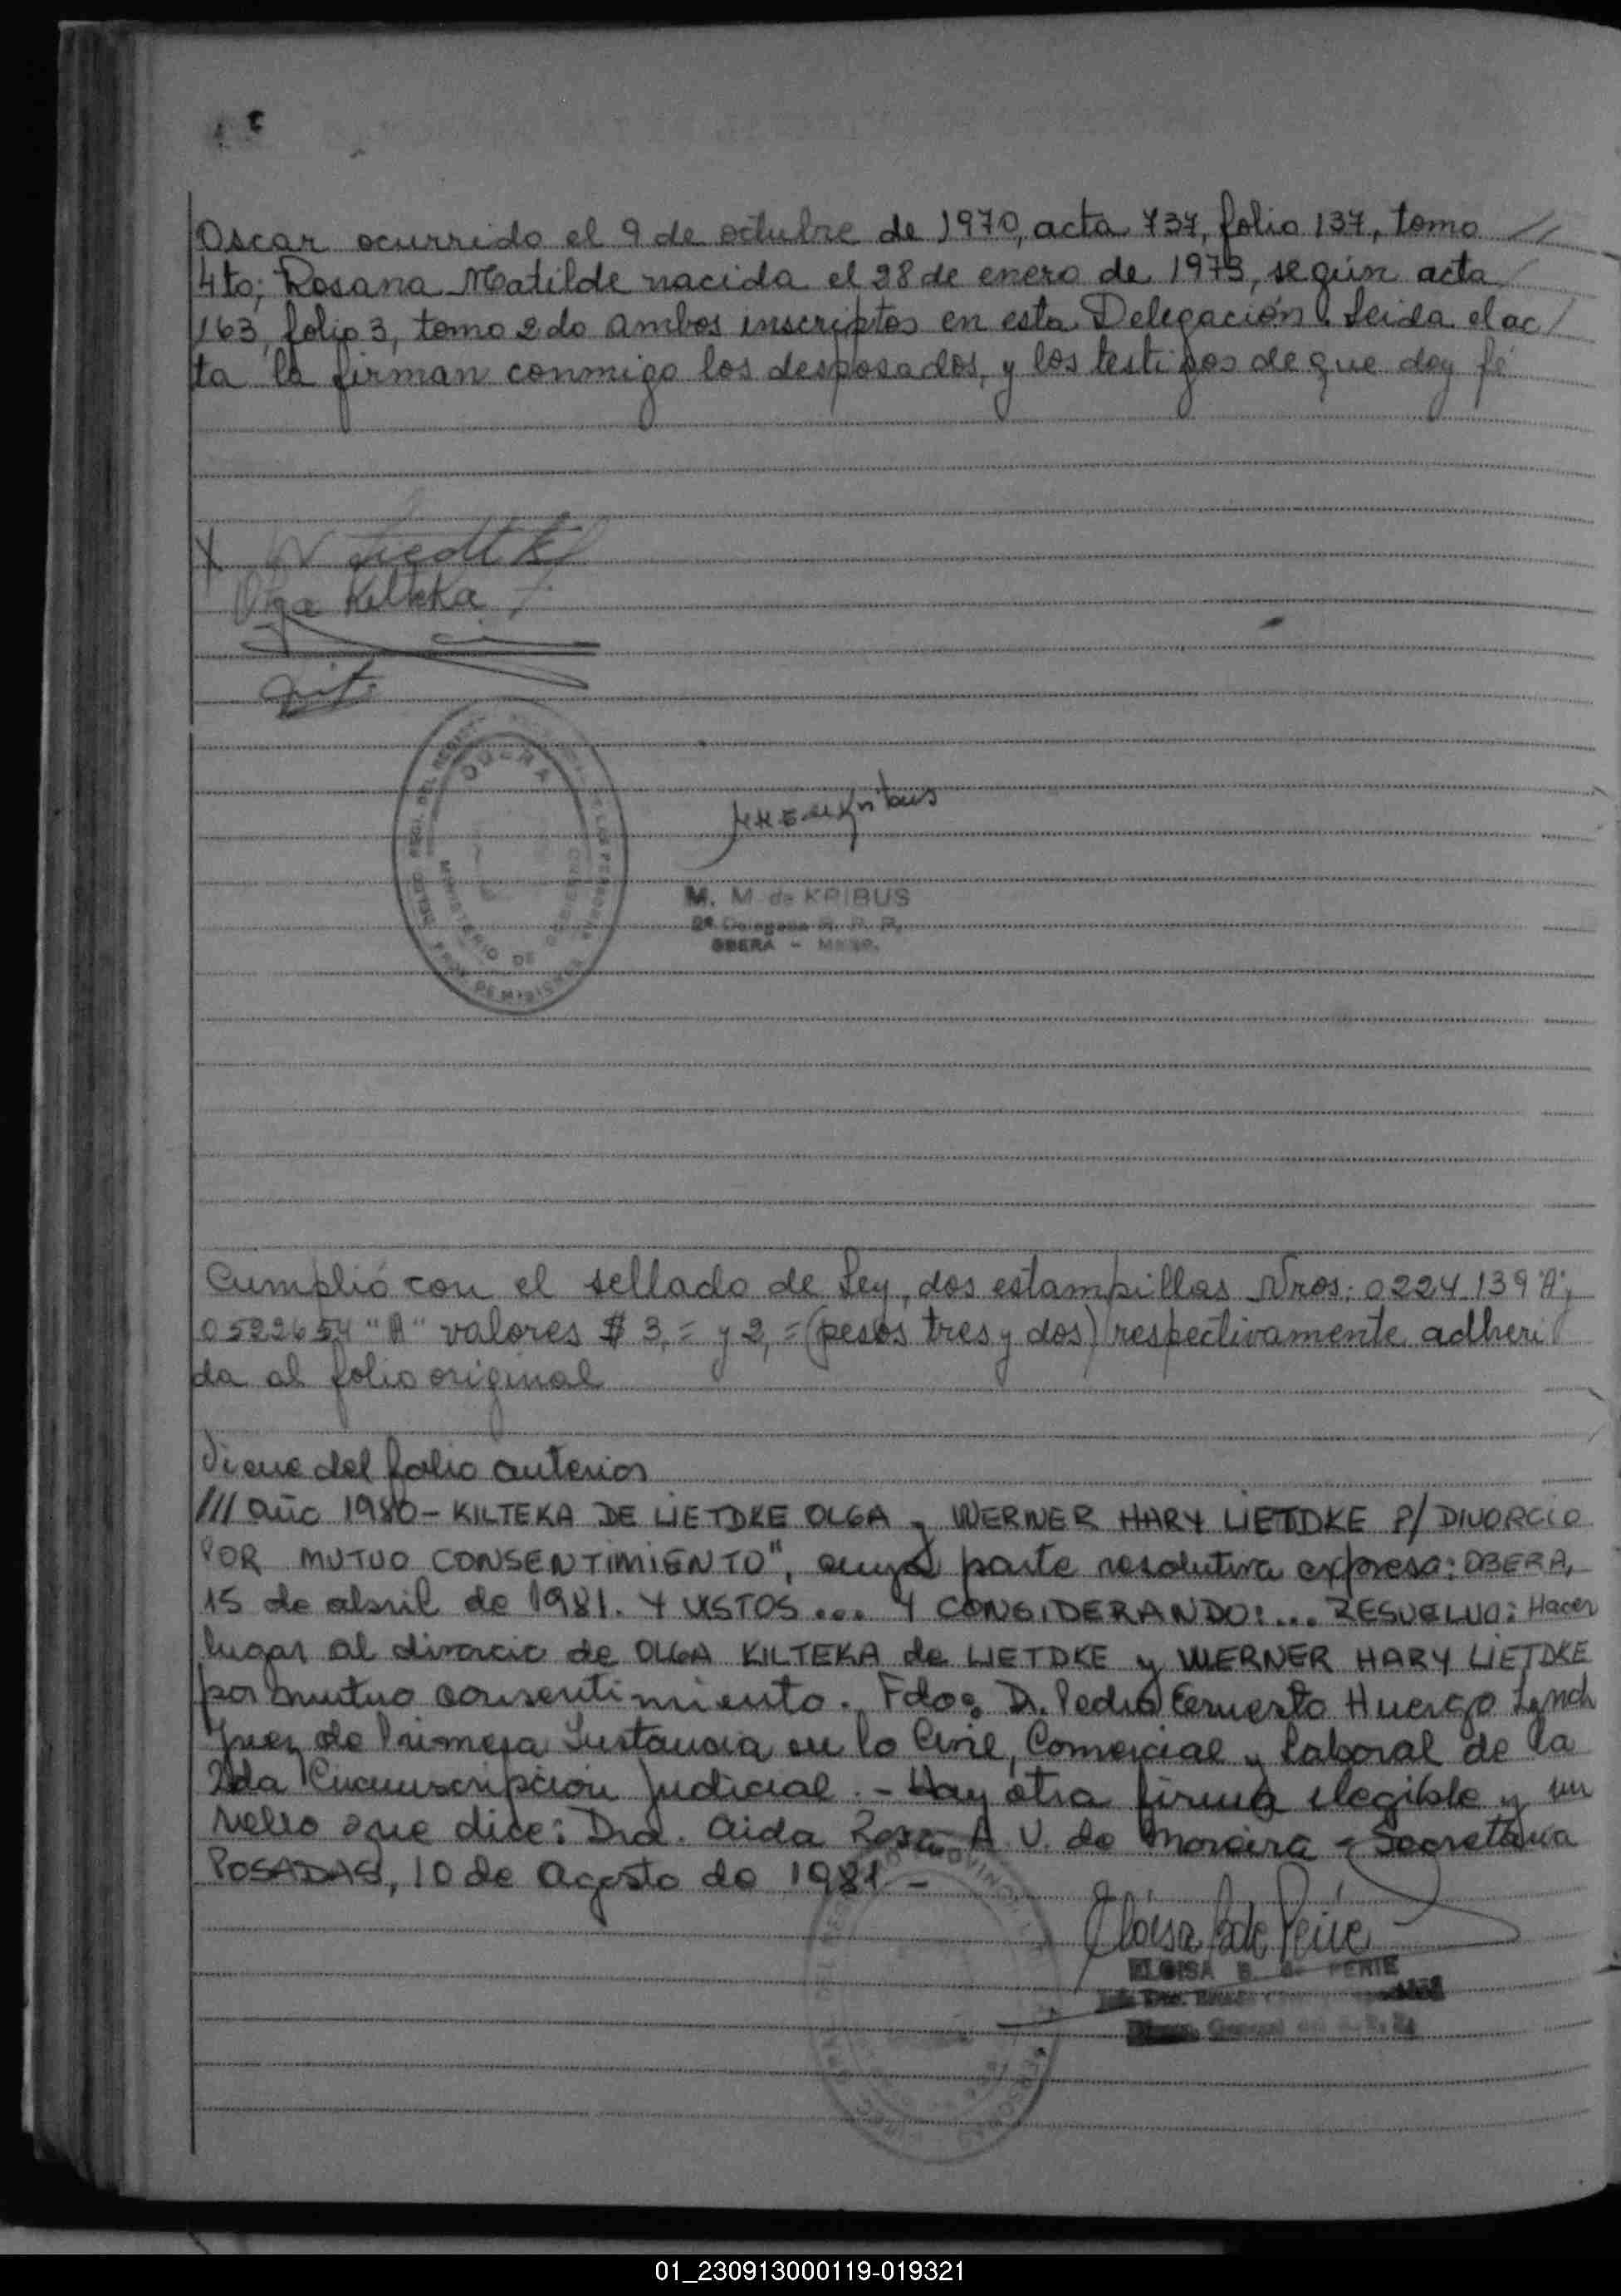 Oscar ocurrido el 9 de octubre de 1970, acta 737, folio 137, tomo //
4to; Rosana Matilde nacida el 28 de enero de 1973, según acta /
163, folio 3, tomo 2do ambos inscriptos en esta Delegación. Leida el ac/
ta la firman conmigo los desposados, y los testigos de que doy fé
Olga Kilteka
OBERA
MINISTERIO DE
PROV. DE MISIONES
M. M. de KRIBUS
OBERA - MNES.
Cumplió con el sellado de Ley, dos estampillas Nros: 0224139 "A",
0522654 "A" valores $ 3,= y 2,= (pesos tres y dos) respectivamente adheri
da al folio original
Viene del folio anterior
/// año 1980 - KILTEKA DE LIETDKE OLGA y WERNER HARY LIETDKE P/ DIVORCIO
POR MUTUO CONSENTIMIENTO", cuya parte resolutiva expresa: OBERA,
15 de abril de 1981. Y VISTOS ... Y CONSIDERANDO: ... RESUELVO: Hacer
lugar al divorcio de OLGA KILTEKA de LIETDKE y WERNER HARY LIETDKE
por mutuo consentimiento. Fdo: Dr. Pedro Ernesto Huergo Lynch
Juez de Primera Instancia en lo Civil, Comercial y Laboral de la
2da Circunscripción Judicial. - Hay otra firma ilegible y un
sello que dice: Dra. Aida Rosa A. V. de Moreira - Secretaria
POSADAS, 10 de Agosto de 1981. -
ELOISA B. de PERIE
01_230913000119-019321